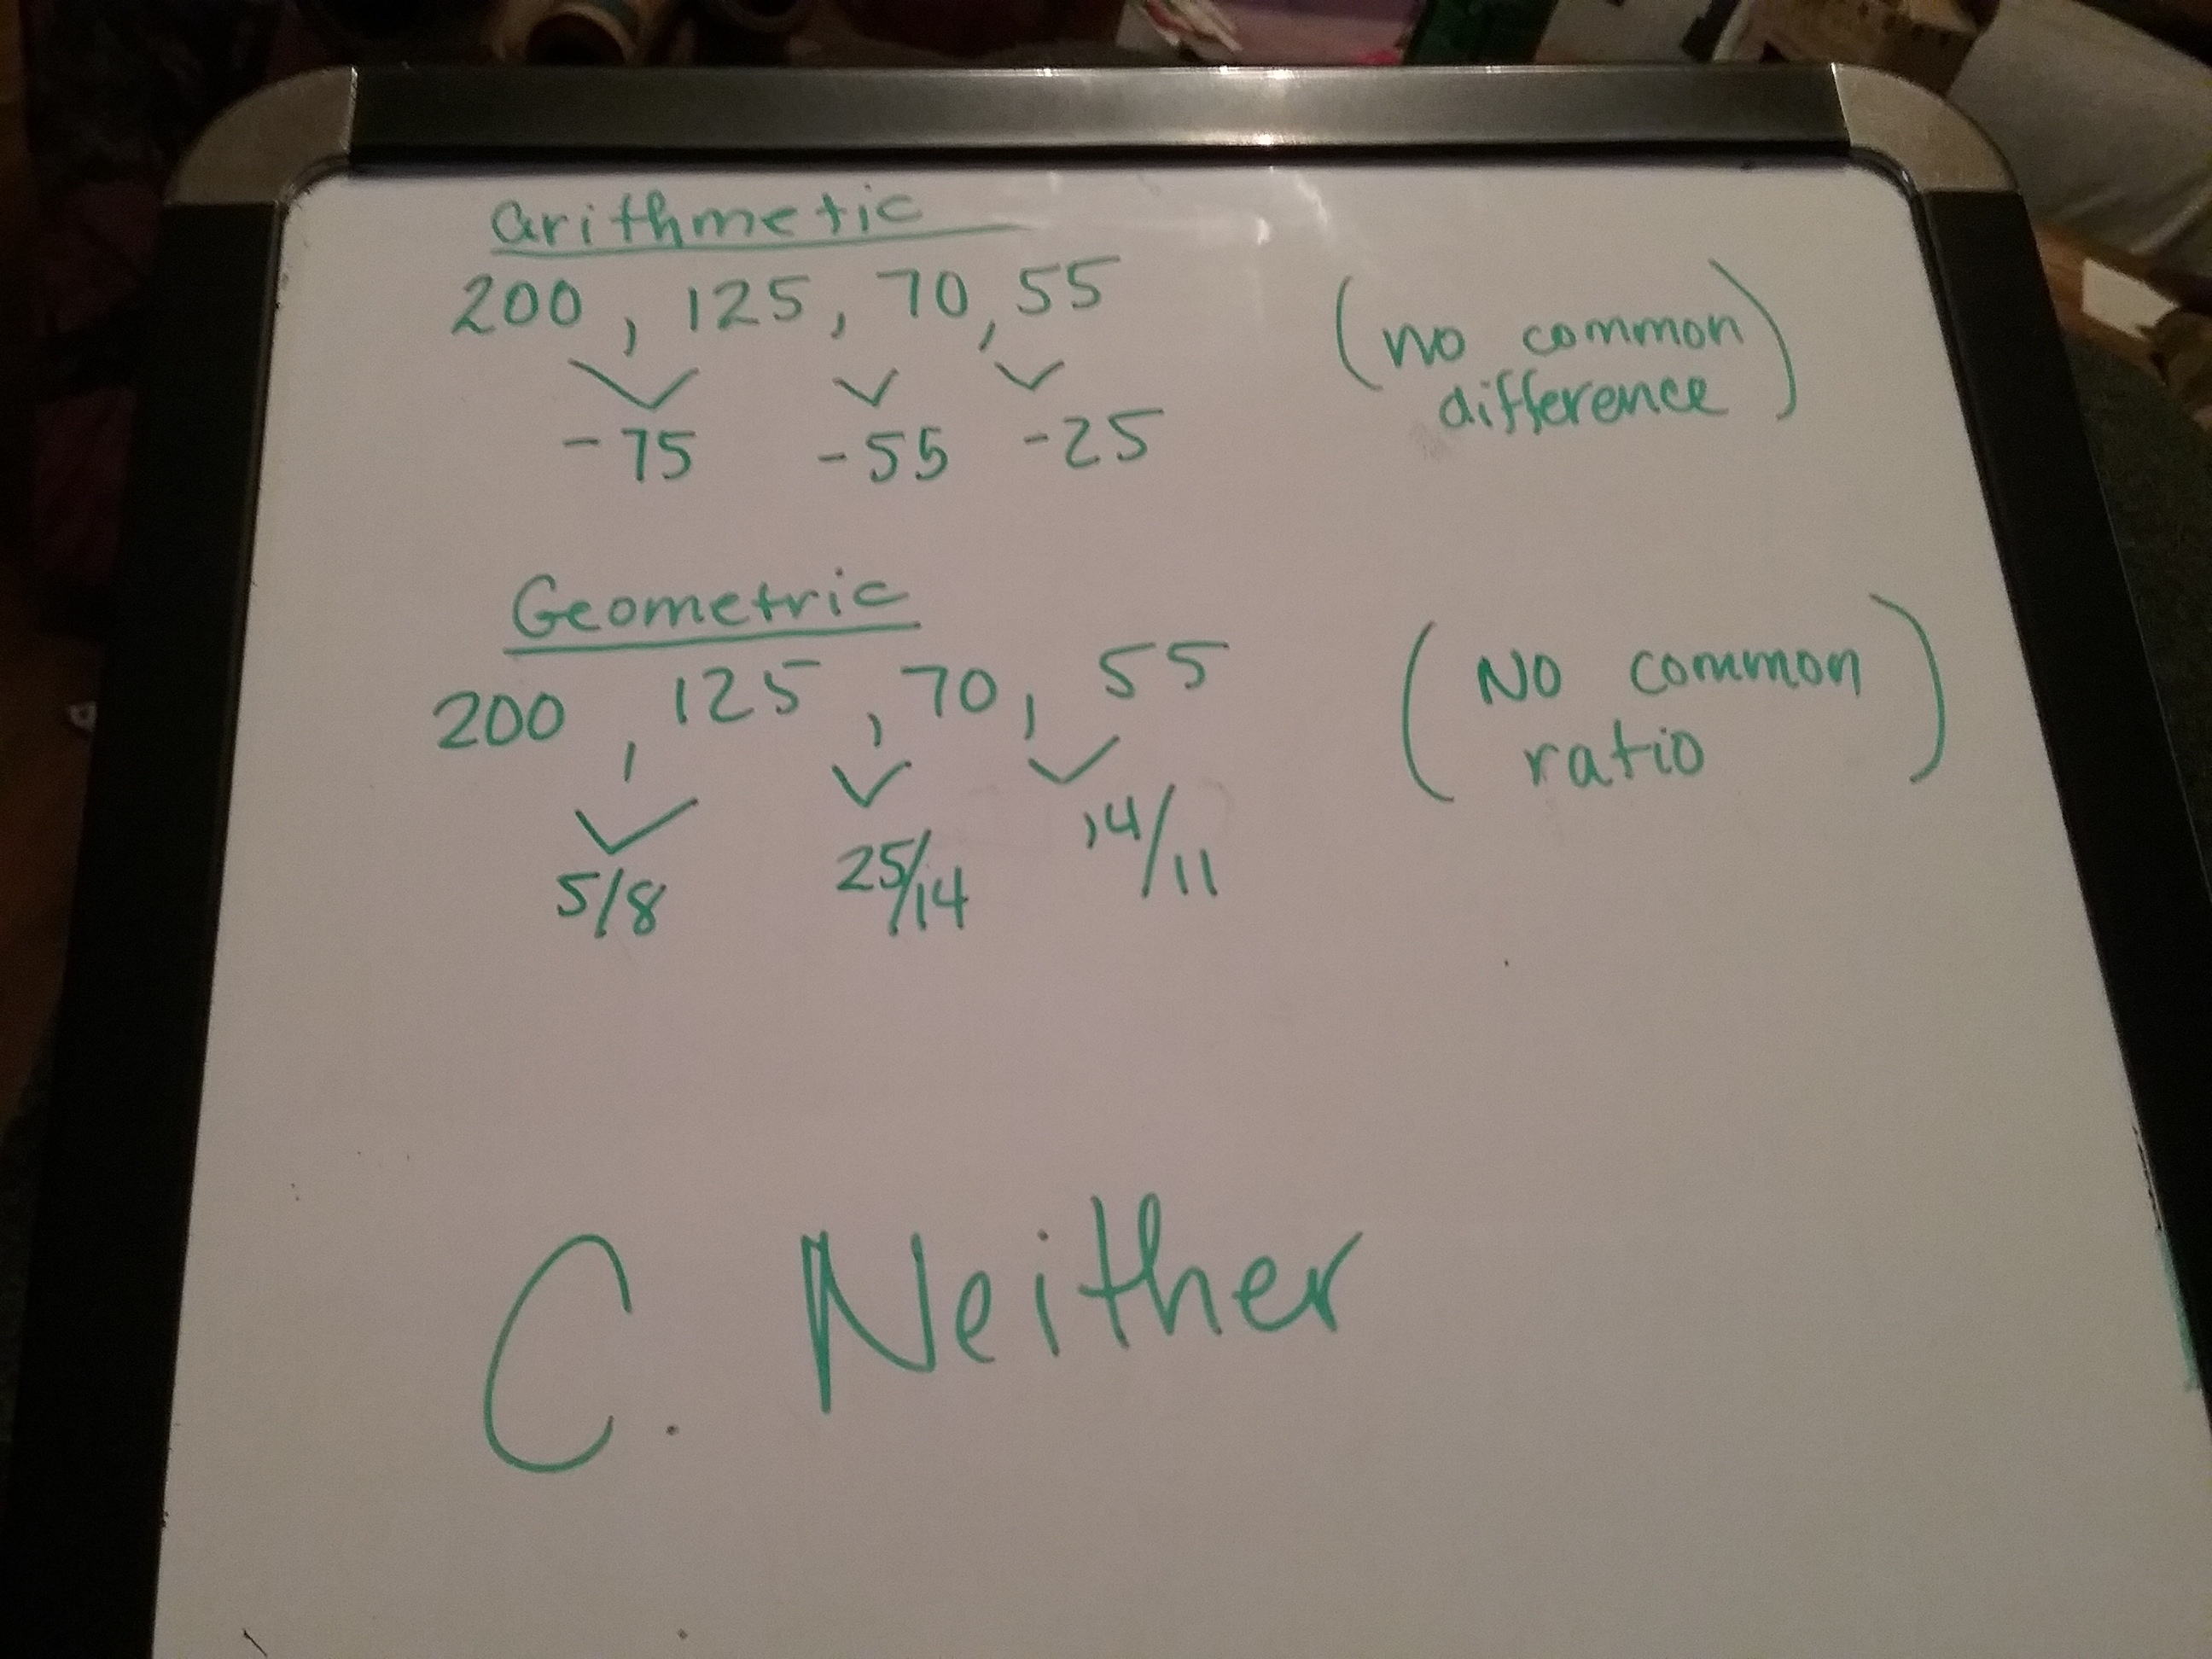 arithmetic
200 , 125 , 70 , 55
-75 -55 -25
(no common
difference)
Geometric
200 , 125 , 70 , 55
5/8 25/14 14/11
(NO common
ratio)
C. Neither